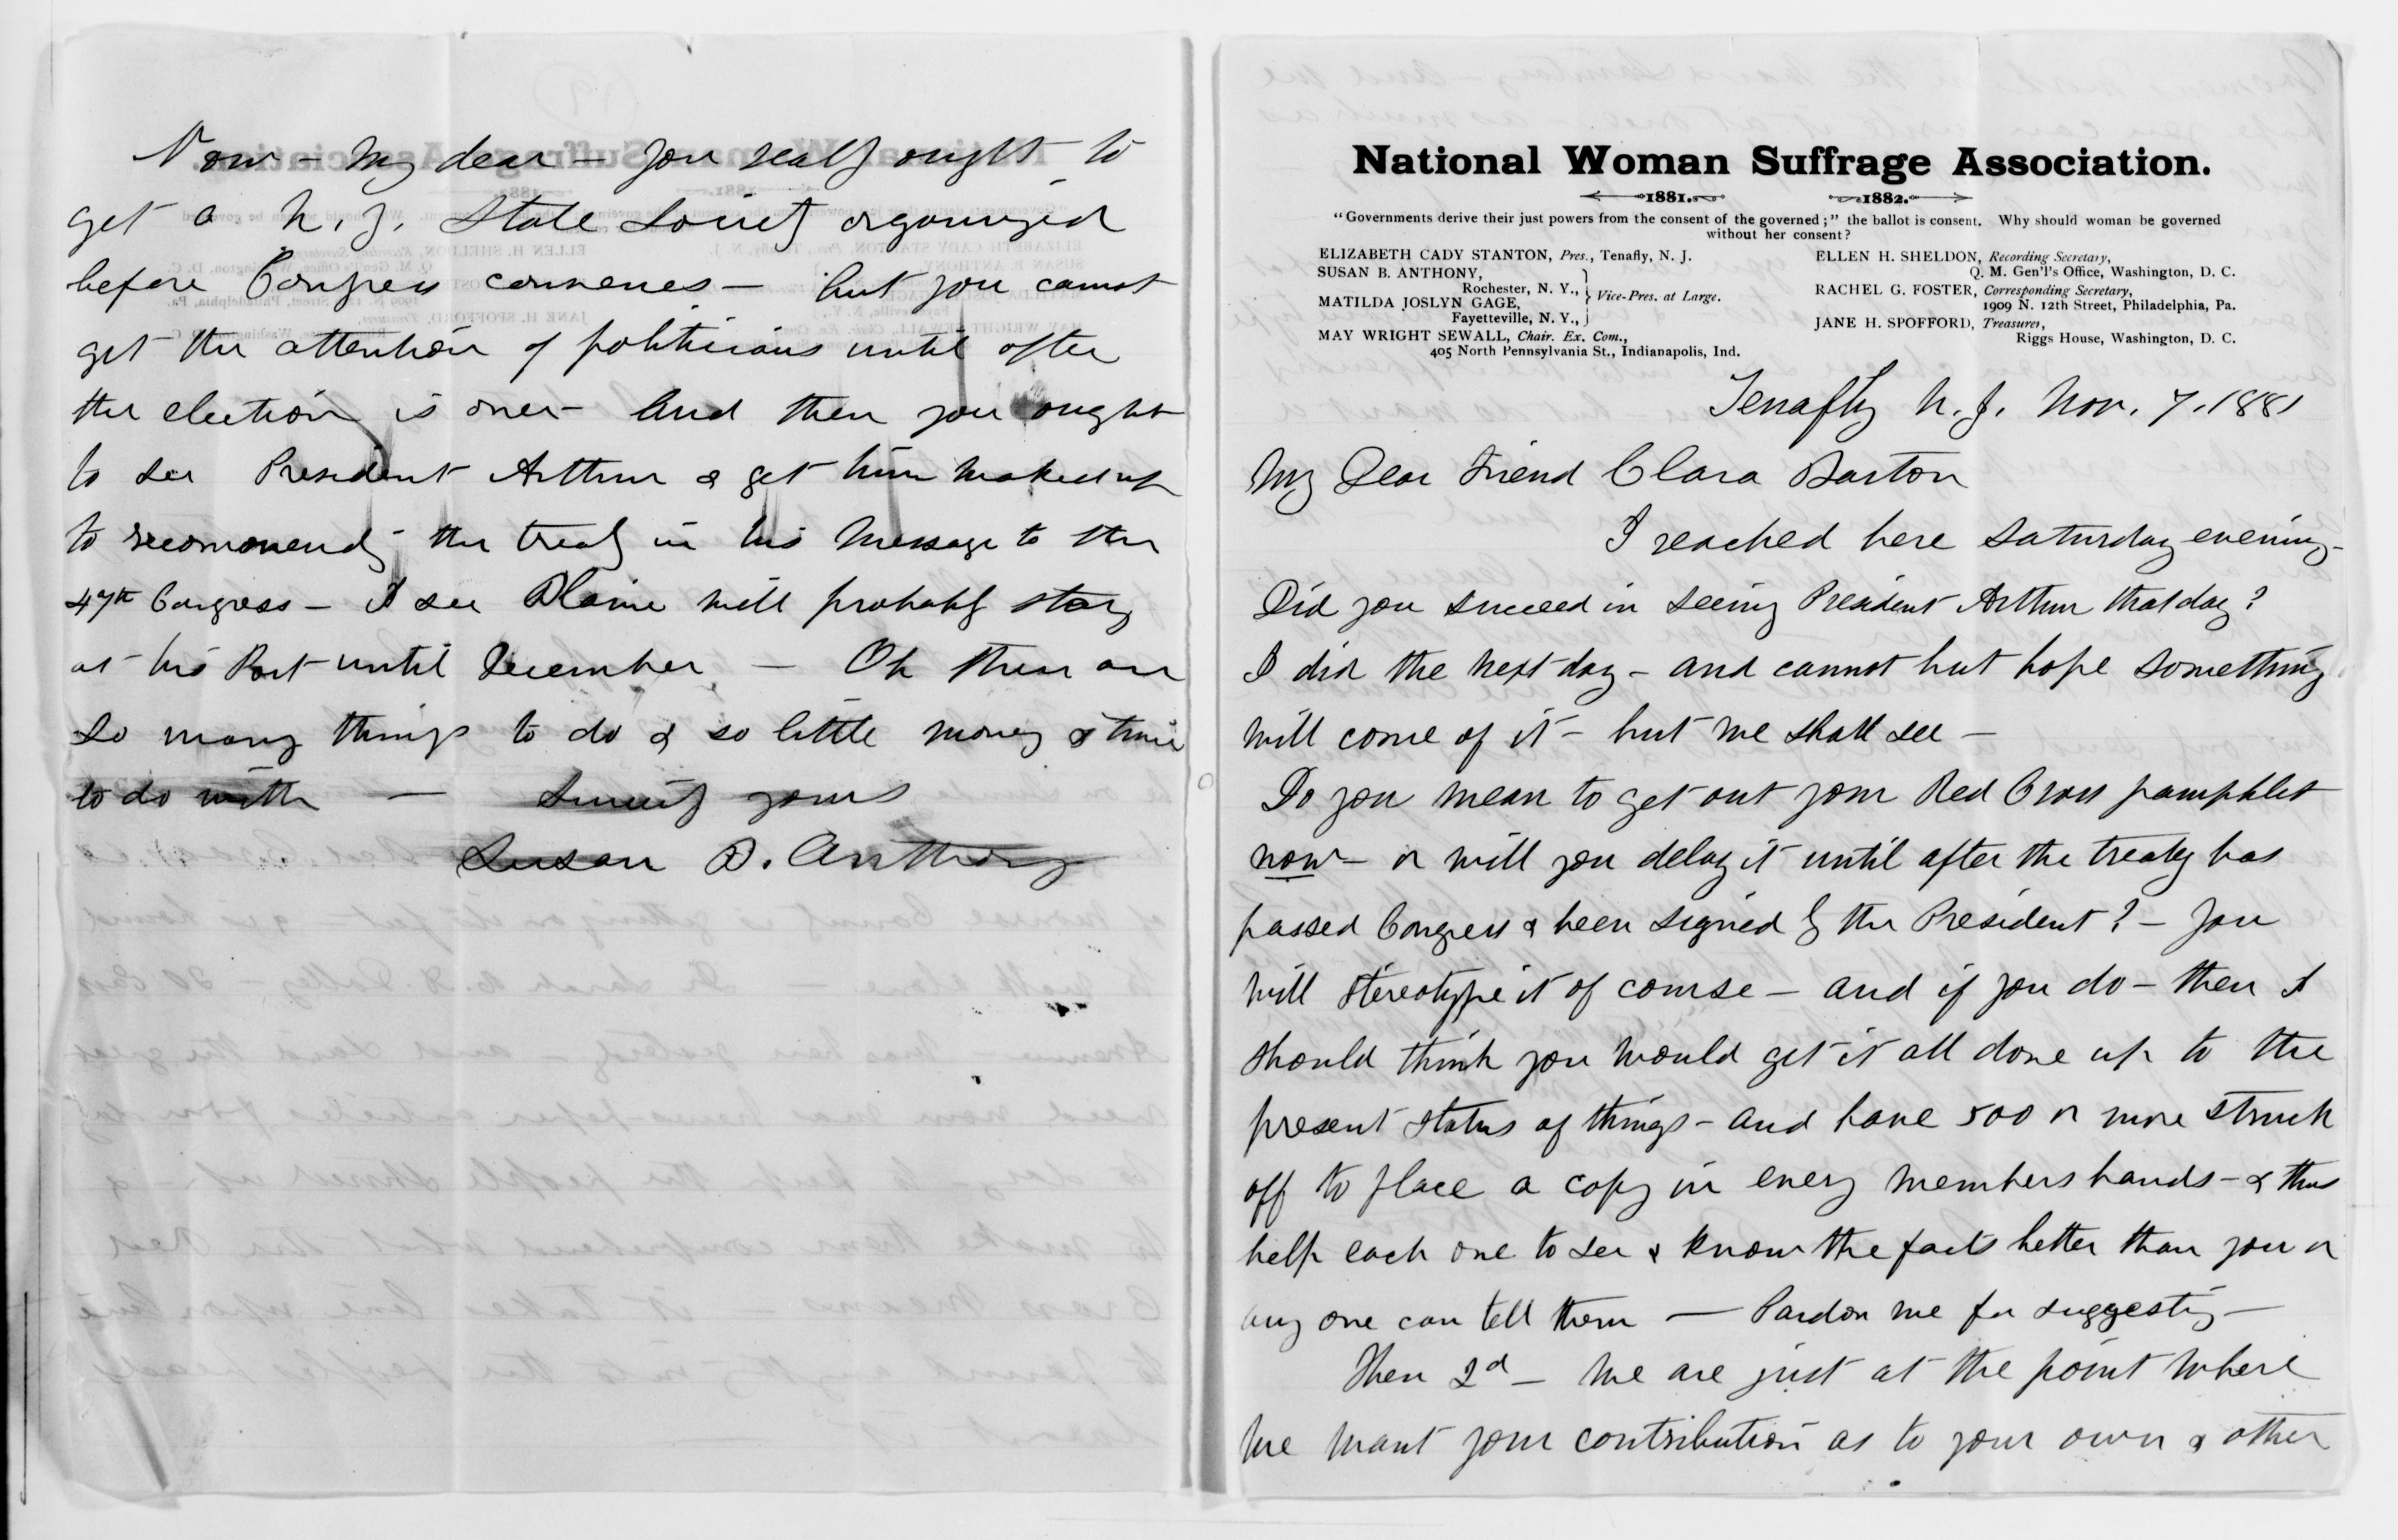 Now - My dear - you really ought to
get a N. J. State Society organized
before Congress convenes - but you cannot
get the attention of politicians until after
the election is over - And then you ought
to see President Arthur & get him waked up
to recommend the treaty in his Message to the
47th Congress - I see Blaine will probably stay
at his Post until December - Oh there are
so many things to do & so little money & time
to do with - Sincerely yours
Susan B. Anthony
National Woman Suffrage Association.
1881. 1882.
"Governments derive their just powers from the consent of the governed;" the ballot is consent. Why should woman be governed
without her consent?
ELIZABETH CADY STANTON, Pres., Tenafly, N. J.
SUSAN B. ANTHONY,
Rochester, N. Y.,
MATILDA JOSLYN GAGE,
Fayetteville, N. Y.,
Vice-Pres. at Large.
MAY WRIGHT SEWALL, Chair. Ex. Com.,
405 North Pennsylvania St., Indianapolis, Ind.
ELLEN H. SHELDON, Recording Secretary,
Q. M. Gen'l's Office, Washington, D. C.
RACHEL G. FOSTER, Corresponding Secretary,
1909 N. 12th Street, Philadelphia, Pa.
JANE H. SPOFFORD, Treasurer,
Riggs House, Washington, D. C.
Tenafly N. J. Nov. 7. 1881
My Dear Friend Clara Barton
I reached here Saturday evening -
Did you succeed in seeing President Arthur that day?
I did the next day - and cannot but hope something
will come of it - but we shall see -
Do you mean to get out your Red Cross pamphlet
now - or will you delay it until after the treaty has
passed Congress & been signed by the President? - You
will stereotype it of course - and if you do - then I
should think you would get it all done up to the
present status of things - and have 500 or more struck
off to place a copy in every members hands - & thus
help each one to see & know the facts better than you or
any one can tell them - Pardon me for suggesting -
Then 2d - We are just at the point where
we want your contribution as to your own & other